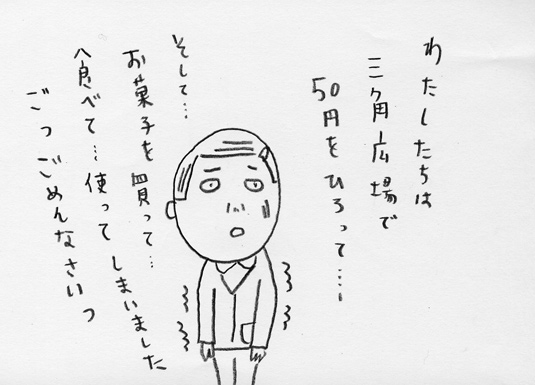 わたしたちは
三角広場で
50円をひろって…
そして…
お菓子を買って…
食べて…使ってしまいました
ごっごめんなさいっ